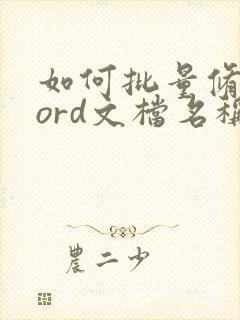 如何批量修
ord文檔名稱
農二少